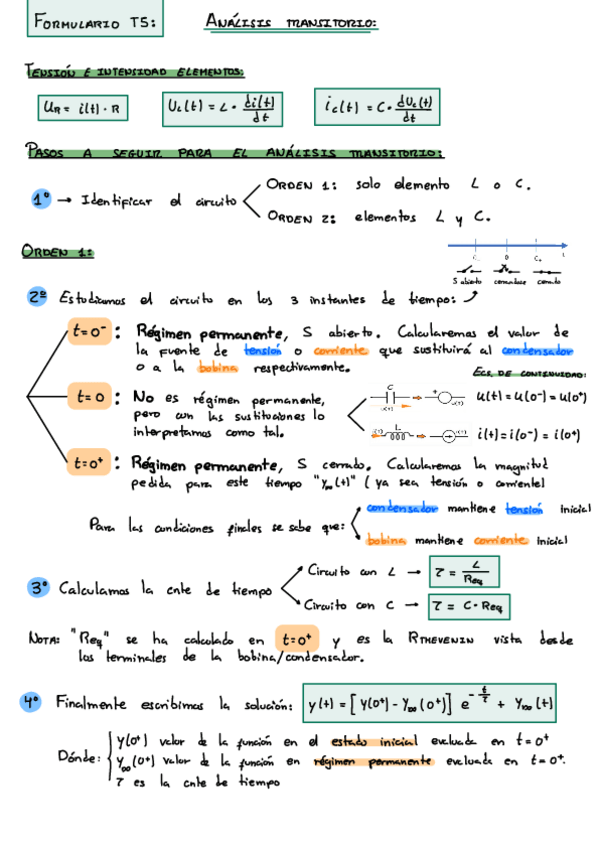 FORMULARIO T5:
ANÁLISIS TRANSITORIO:
TENSIÓN E INTENSIDAD ELEMENTOS:
U_R = i(t) · R
U_L(t) = L · di(t)/dt
i_c(t) = C · dU_c(t)/dt
PASOS A SEGUIR PARA EL ANÁLISIS TRANSITORIO:
1º → Identificar el circuito
ORDEN 1: solo elemento L o C.
ORDEN 2: elementos L y C.
ORDEN 1:
S abierto conmutase cerrado
2º Estudiamos el circuito en los 3 instantes de tiempo:
t=0⁻ : Régimen permanente, S abierto. Calcularemos el valor de
la fuente de tensión o corriente que sustituirá al condensador
o a la bobina respectivamente.
ECS. DE CONTINUIDAD:
t=0 : No es régimen permanente,
pero con las sustituciones lo
interpretamos como tal.
C
u(t) = u(0⁻) = u(0⁺)
L
i(t) = i(0⁻) = i(0⁺)
t=0⁺ : Régimen permanente, S cerrado. Calcularemos la magnitud
pedida para este tiempo "y∞(t)" (ya sea tensión o corriente)
Para las condiciones finales se sabe que:
condensador mantiene tensión inicial
bobina mantiene corriente inicial
3º Calculamos la cnte de tiempo
Circuito con L → τ = L/Req
Circuito con C → τ = C · Req
NOTA: "Req" se ha calculado en t=0⁺ y es la RTHEVENIN vista desde
los terminales de la bobina/condensador.
4º Finalmente escribimos la solución: y(t) = [y(0⁺) - y∞(0⁺)] e^(-t/τ) + y∞(t)
Dónde:
y(0⁺) valor de la función en el estado inicial evaluada en t=0⁺
y∞(0⁺) valor de la función en régimen permanente evaluada en t=0⁺.
τ es la cnte de tiempo